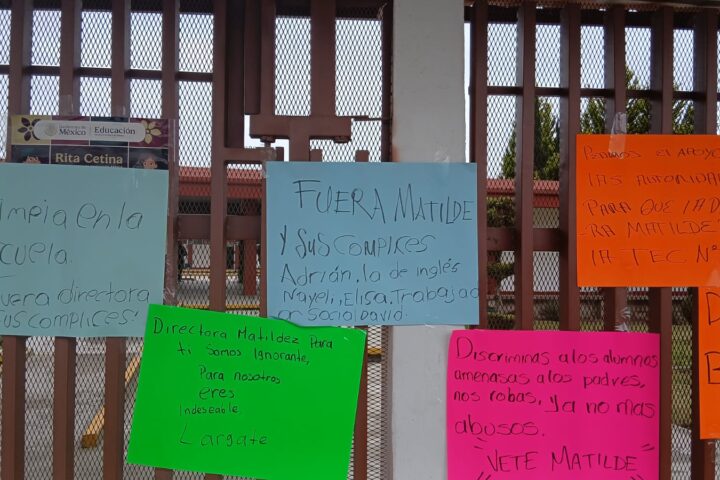 México Educación
Rita Cetina
impia en la
cuela.
uera directora
sus complices!
FUERA MATILDE
Y SUS COMPLICES
Adrián, la de inglés
Nayeli, Elisa, Trabajad
or Social David.
Directora Matildez Para
ti Somos Ignorante,
Para nosotros
eres
Indeseable.
Largate
Discriminas a los alumnos
amenasas a los padres,
nos robas, Ya no mas
abusos.
VETE MATILDE
EL APOYO
LAS AUTORIDA
PARA QUE LA D
RA MATILDE
LA TEC Nº